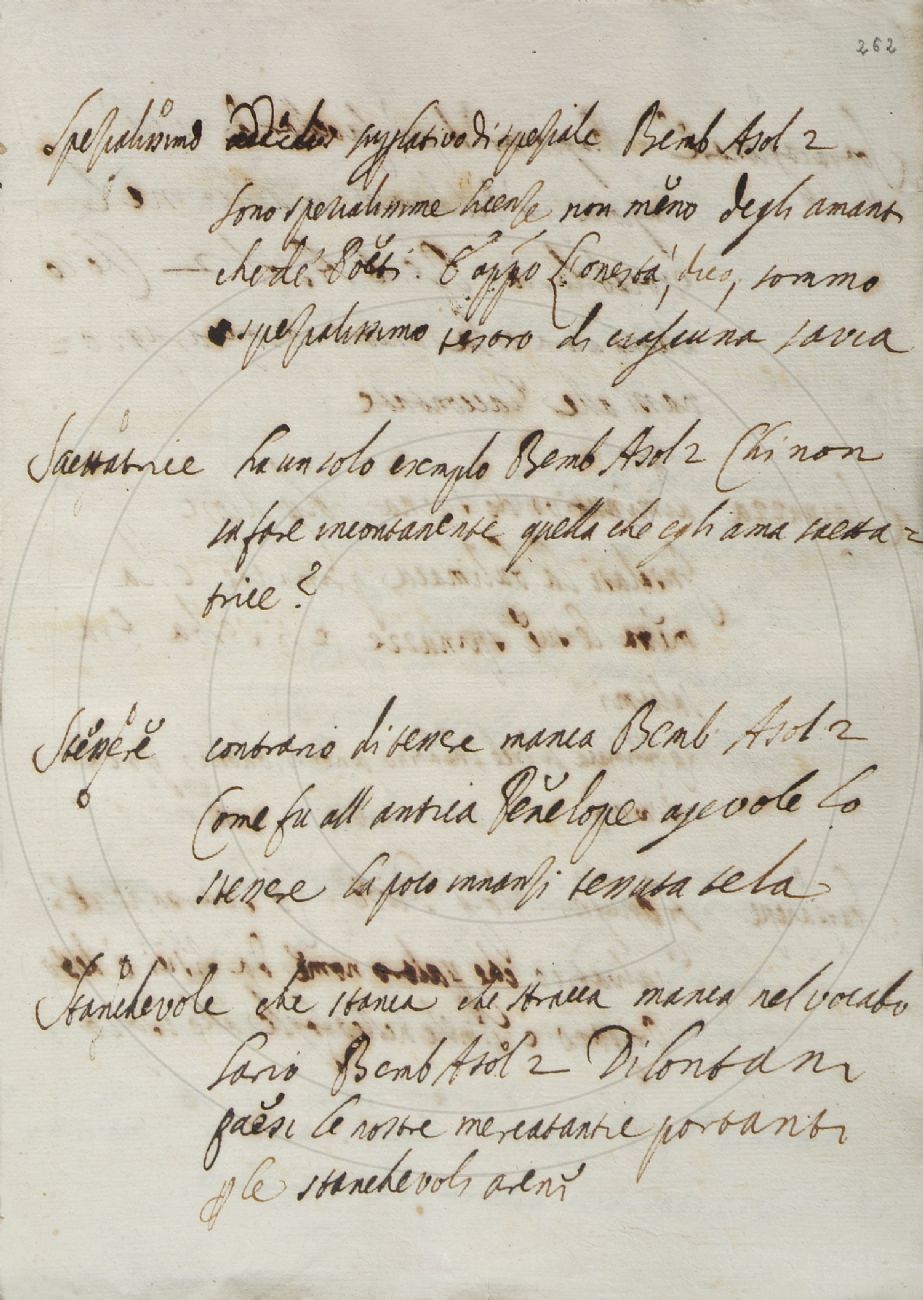 262
Spezialissimo superlativo di speziale Bemb Asol 2
sono spezialissime licenze non meno degli amanti
che de' Poeti. E appo L'onestà, dico, sommo
e spezialissimo tesoro di ciascuna savia
Saettatrice ha un solo exemplo Bemb Asol 2 Chi non
sa fare incontanente quella che egli ama saetta=
trice?
Stessere contrario di tessere manca Bemb Asol 2
Come fu all' antica Penelope agevole lo
stessere la poco innanzi tessuta tela
Stanchevole che stanca che stracca manca nel vocabo
lario Bemb Asol 2 Di lontani
paesi le nostre mercatantie portanti
per le stanchevoli areni